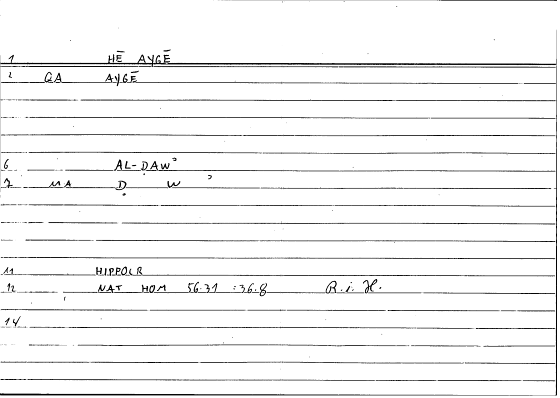 1 HĒ AYGĒ
2 GA AYGĒ
6 AL-ḌAWʾ
7 MA Ḍ W ʾ
11 HIPPOCR
12 NAT HOM 56.31 :36.8 R.i.H.
14